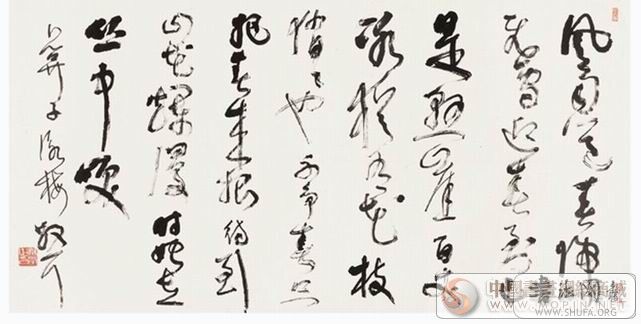 風雨送春歸
飛雪迎春到已
是懸崖百丈
冰猶有花枝
俏俏也不争春只
把春来报待到
山花爛漫時她在
丛中笑
卜算子咏梅
WWW.MOPIN.NET
WWW.SHUFA.ORG